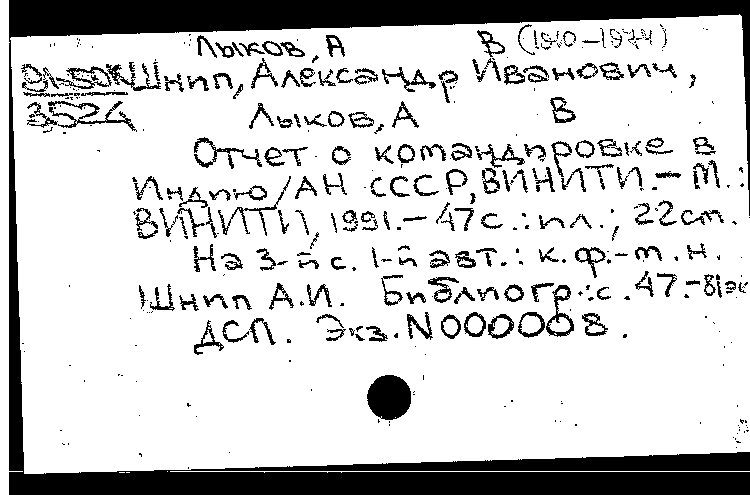 Лыков, А В (1910-1974)
91-50К Шнип, Александр Иванович,
3524 Лыков, А В
Отчет о командировке в
Индию/АН СССР, ВИНИТИ. - М. :
ВИНИТИ, 1991. - 47 с. : ил. ; 22 см.
На 3-й с. 1-й авт. : к. ф.-м. н.
Шнип А.И. Библиогр.: с. 47. - 81 эк
ДСП. Экз. N000008.